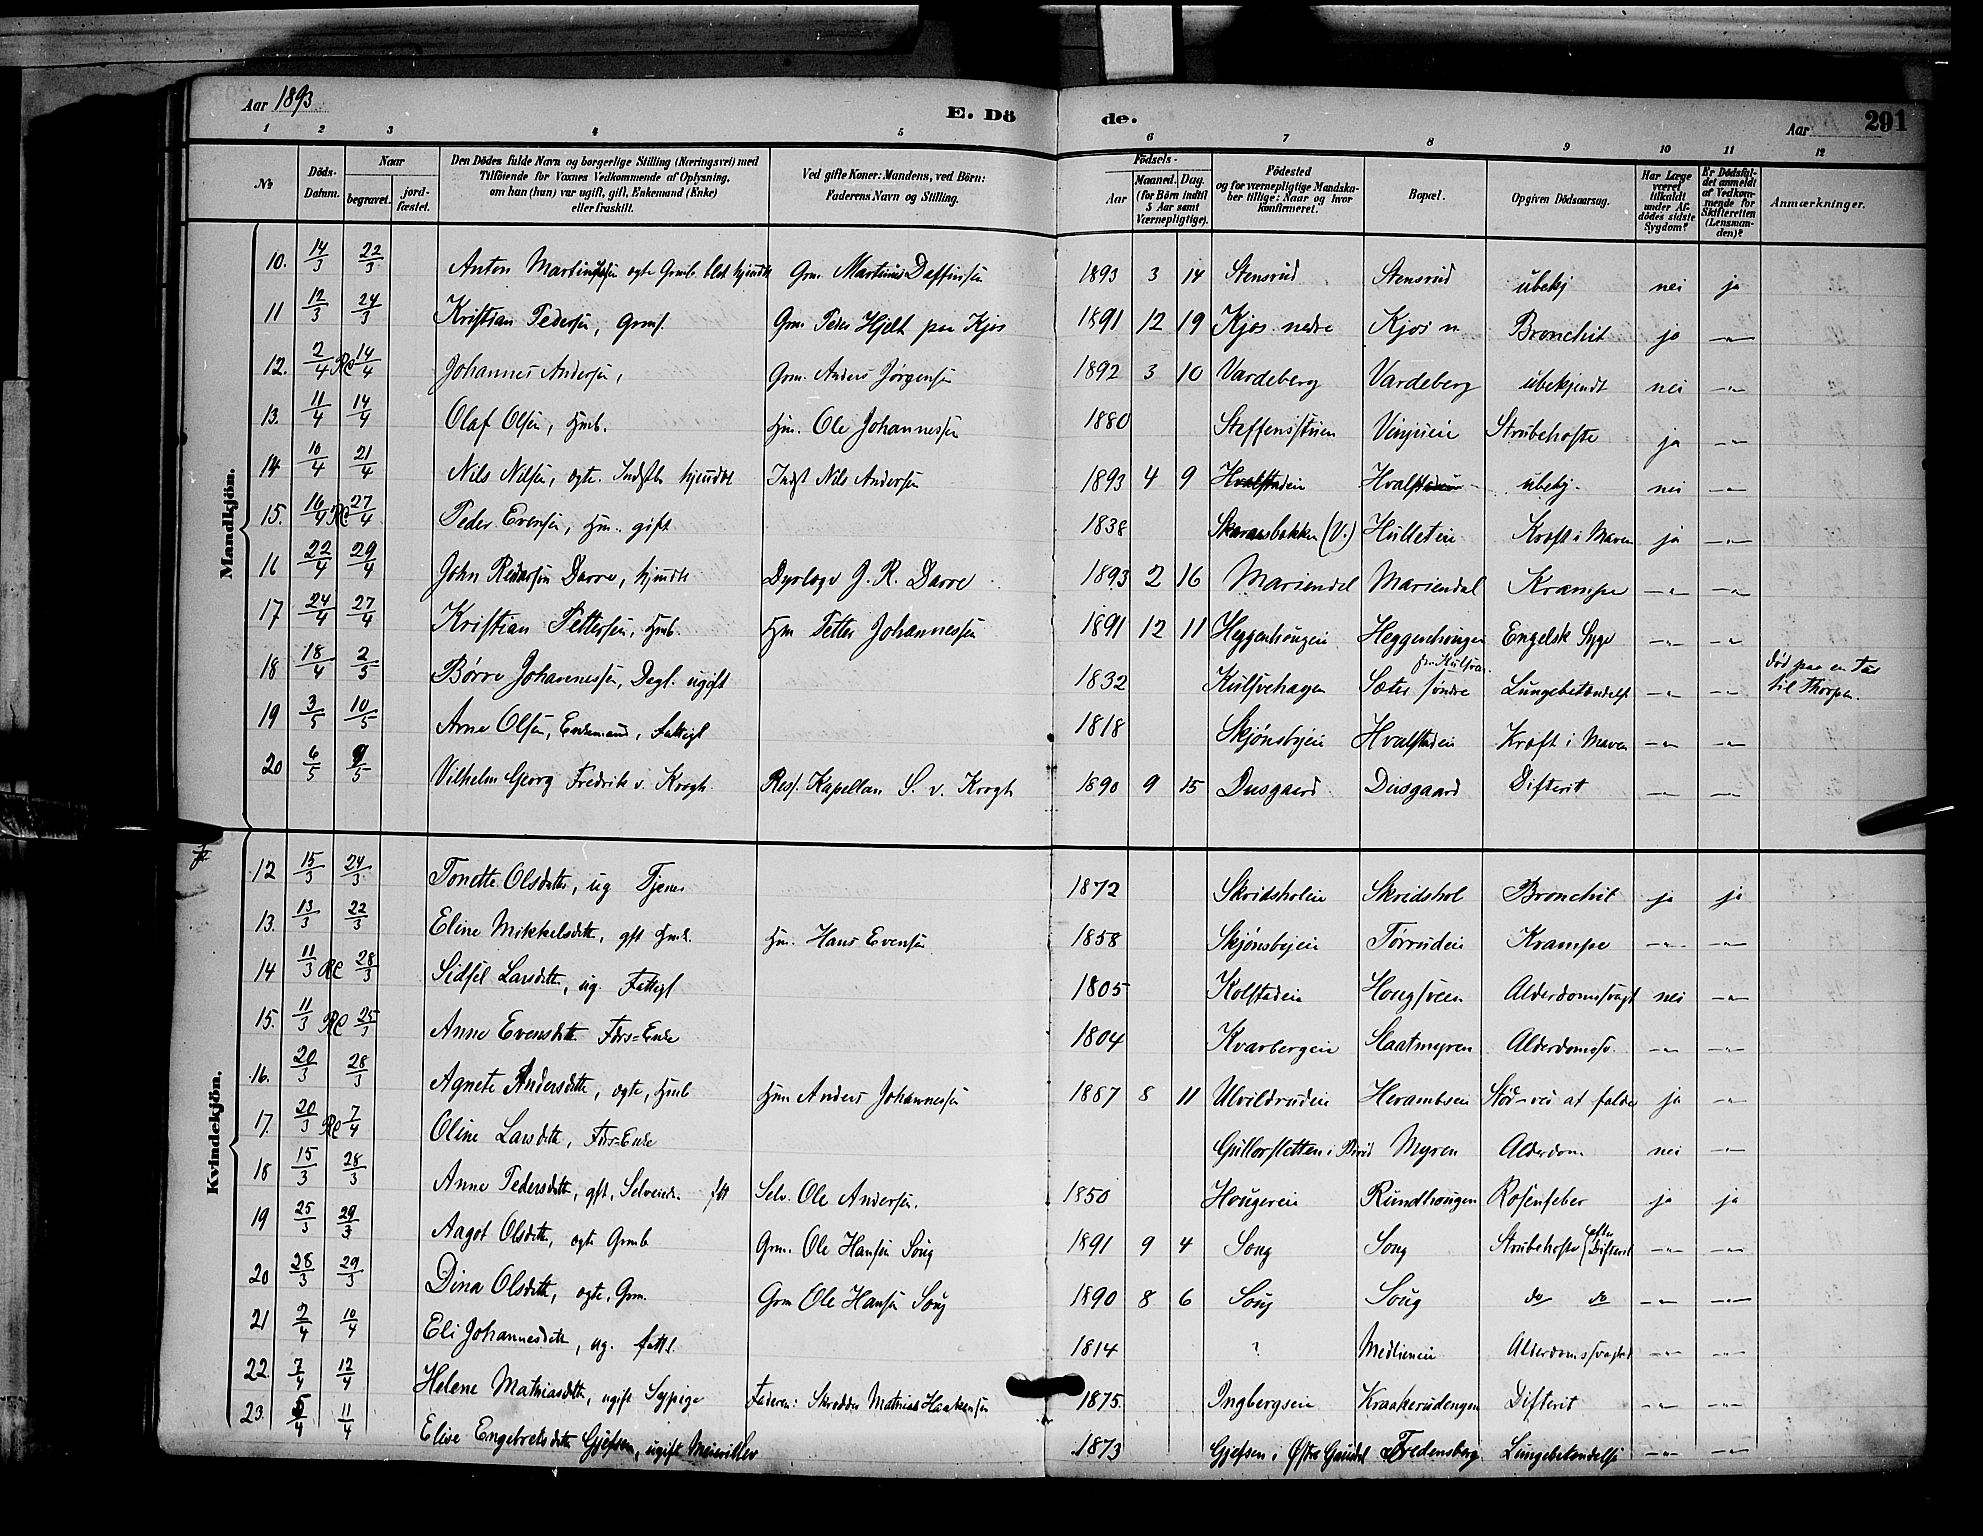 Aar 1893
E. Dö
de.
Aar
291
1 2 3 4 5 6 7 8 9 10 11 12
No
Döds-Datum.
Naar
begravet. jord-fæstet.
Den Dödes fulde Navn og borgerlige Stilling (Næringsvei) med
Tilföiende for Voxnes Vedkommende af Oplysning,
om han (hun) var ugift, gift, Enkemand (Enke)
eller fraskilt.
Ved gifte Koner: Mandens, ved Börn:
Faderens Navn og Stilling.
Födsels-
Aar
Maaned. Dag.
(for Börn indtil
5 Aar samt
Værnepligtige).
Födested
og for værnepligtige Mandska-
ber tillige: Naar og hvor
konfirmeret.
Bopæl.
Opgiven Dödsaarsag.
Har Læge
været
tilkaldt
under Af-
dödes sidste
Sygdom?
Er Dödsfal-
det anmeldt
af Vedkom-
mende for
Skifteretten
(Lensman-
den)?
Anmærkninger.
Mandkjön.
10. 14/3 22/3 Anton Martinsen ogte Grmb. blot hjemdt Grm. Martinus Daffinsen 1893 3 14 Stensrud Stensrud ubekj nei ja
11 12/3 24/3 Kristian Pedersen, Grmf. Grm. Peder Hjelt paa Kjos 1891 12 19 Kjos nedre Kjos n Bronchit ja -"-
12. 2/4 Re 14/4 Johannes Andersen, Grm. Anders Jörgensen 1892 3 10 Vardeberg Vardeberg ubekjendt nei -"-
13. 11/4 14/4 Olaf Olsen, Hmb. Hm. Ole Johannessen 1880 Steffensstuen Vinjueie Strubehoste ja -"-
14 10/4 21/4 Nils Nilsen, ogte. Indstb hjemdt Indst Nils Andersen 1893 4 9 Hvalstadeie Hvalstadeie ubekj. nei -"-
15. 16/4 Re 27/4 Peder Evensen, Hm. gift 1838 Skaraasbakken (V.) Hulleteie Kræft i Maven ja -"-
16 22/4 29/4 John Reidersen Darre, hjemdt Dyrlæge J. R. Darre 1893 2 16 Mariendal Mariendal Krampe -"- -"-
17 24/4 27/4 Kristian Pettersen, Hmb. Hm Petter Johannessen 1891 12 11 Heggenhougen Heggenhougen Engelsk Syge -"- -"-
18 18/4 2/5 Börre Johannessen, Dagl. ugift 1832 Kulsvehagen Sæter söndre Lungebetændelse -"- -"- död paa en Tur
til Thorpen.
19 3/5 10/5 Arne Olsen, Enkemand, Fattigl 1818 Skjönsbyeie Hvalstadeie Kræft i Maven -"- -"-
20 6/5 9/5 Vilhelm Georg Fredrik v. Krogh. Res. Kapellan S. v. Krogh 1890 9 15 Dusgaard Dusgaard Difterit -"- -"-
Kvindekjön.
12 15/3 24/3 Tonette Olsdatter, ug Tjener 1872 Skridsholeie Skredshol Bronchit ja ja
13. 13/3 22/3 Eline Mikkelsdtt, gft Hmk. Hm. Hans Evensen 1858 Skjönsbyeie Törrudeie Krampe -"- -"-
14 11/3 Re 28/3 Sidsel Larsdttr, ug. Fattigl 1805 Kolstadeie Hougsveen Alderdomssvagh nei -"-
15. 11/3 Re 25/3 Anne Evensdttr Fdrs=Enke 1804 Kvarbergeie Slaatmyren Alderdomssv. -"- -"-
16. 20/3 28/3 Agnete Andersdtt, ogte, Hmb Hm Anders Johannessen 1887 8 11 Ulvildrudeie Herambseie Stöd ved at falde ja -"-
17. 20/3 Re 7/4 Oline Larsdttr, Fdrs=Enke Gullorsletten i Birid Myren Alderdom nei -"-
18 15/3 28/3 Anne Pedersdtt, gft, Selveierk. ftt Selv. Ole Andersen. 1850 Hougereie Rundhougen Rosenfeber ja ja
19 25/3 29/3 Aagot Olsdtt, ogte Grmb Grm. Ole Hansen Soug 1891 9 4 Soug Soug Strubehoste (efter Difterit -"- -"-
20 28/3 29/3 Dina Olsdtt, ogte, Grm. Grm Ole Hansen Soug 1890 8 6 Soug Soug do do -"- -"-
21 2/4 10/4 Eli Johannesdtt, ug. fattl 1814 ? Medlieneie Alderdomssvaghed -"- -"-
22. 7/4 12/4 Helene Mathiasdtt, ugift Sypige Faderen: Skredder Mathias Haakensen 1875. Ingbergseie Kraakerudengen Difterit -"- -"-
23. 5/4 11/4 Elise Engebretsdtt Gjefsen, ugift Meierielev 1873 Gjefsen i Östre Gausdal Fredensberg Lungebetændelse -"- -"-